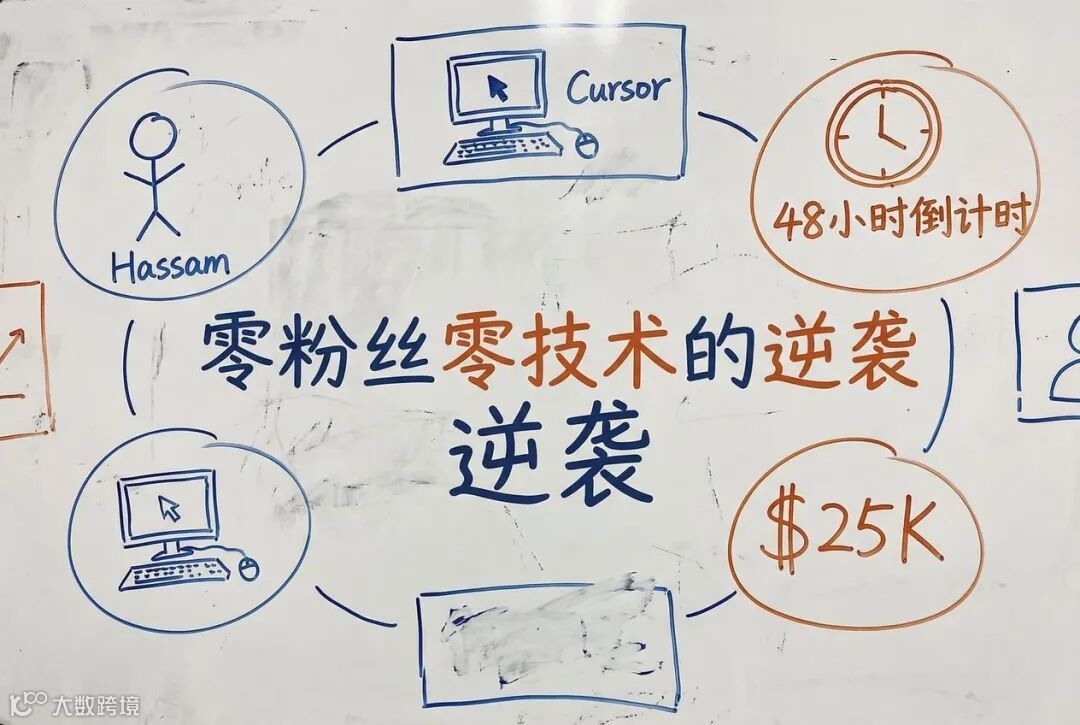 Cursor
48小时倒计时
Hassam
零粉丝零技术的逆袭
逆袭
$25K
大数跨境